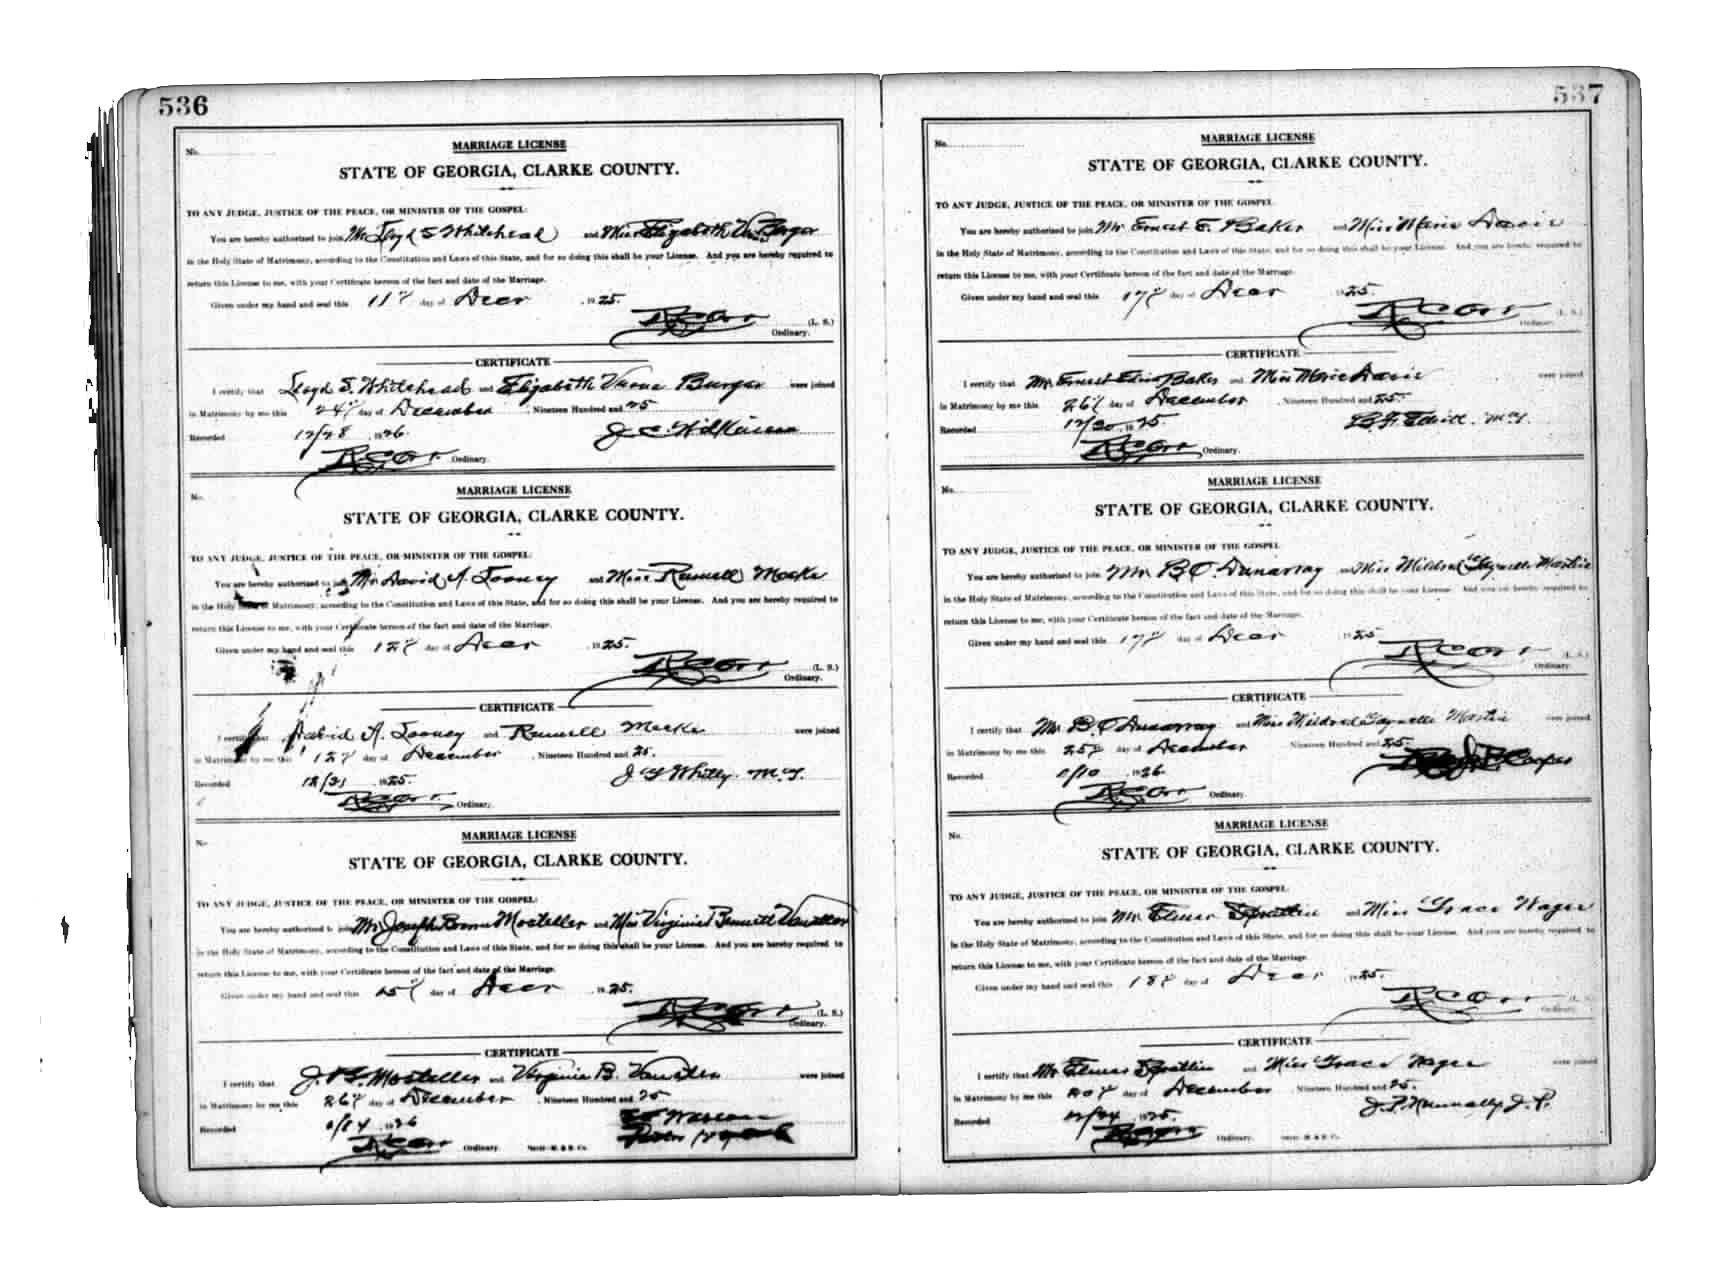 536
No.
MARRIAGE LICENSE
STATE OF GEORGIA, CLARKE COUNTY.
TO ANY JUDGE, JUSTICE OF THE PEACE, OR MINISTER OF THE GOSPEL:
You are hereby authorized to join Mr Lloyd S Whitehead and Miss Elizabeth V. Burger
in the Holy State of Matrimony, according to the Constitution and Laws of this State, and for so doing this shall be your License. And you are hereby required to
return this License to me, with your Certificate hereon of the fact and date of the Marriage.
Given under my hand and seal this 11" day of Decr 1925.
R C Orr (L. S.)
Ordinary.
CERTIFICATE
I certify that Lloyd S. Whitehead and Elizabeth Burger were joined
in Matrimony by me this 24" day of December, Nineteen Hundred and 25
Recorded 12/28 1926 J. C. Wilkinson
R C Orr. Ordinary.
No.
MARRIAGE LICENSE
STATE OF GEORGIA, CLARKE COUNTY.
TO ANY JUDGE, JUSTICE OF THE PEACE, OR MINISTER OF THE GOSPEL:
You are hereby authorized to join Mr David A. Looney and Miss Russell Meeks
in the Holy State of Matrimony, according to the Constitution and Laws of this State, and for so doing this shall be your License. And you are hereby required to
return this License to me, with your Certificate hereon of the fact and date of the Marriage.
Given under my hand and seal this 12" day of Decr 1925.
R C Orr (L. S.)
Ordinary.
CERTIFICATE
I certify that David A. Looney and Russell Meeks were joined
in Matrimony by me this 12" day of December, Nineteen Hundred and 25.
Recorded 12/31 1925. J F Whitly. M.G.
R C Orr. Ordinary.
No.
MARRIAGE LICENSE
STATE OF GEORGIA, CLARKE COUNTY.
TO ANY JUDGE, JUSTICE OF THE PEACE, OR MINISTER OF THE GOSPEL:
You are hereby authorized to join Mr Joseph Mosteller and Miss Virginia Bennett
in the Holy State of Matrimony, according to the Constitution and Laws of this State, and for so doing this shall be your License. And you are hereby required to
return this License to me, with your Certificate hereon of the fact and date of the Marriage.
Given under my hand and seal this 15" day of Decr 1925.
R C Orr (L. S.)
Ordinary.
CERTIFICATE
I certify that J. Mosteller and Virginia B. were joined
in Matrimony by me this 26" day of December, Nineteen Hundred and 25
Recorded 1926
R C Orr Ordinary.
537
No.
MARRIAGE LICENSE
STATE OF GEORGIA, CLARKE COUNTY.
TO ANY JUDGE, JUSTICE OF THE PEACE, OR MINISTER OF THE GOSPEL:
You are hereby authorized to join Mr Ernest E. Baker and Miss Marie Davis
in the Holy State of Matrimony, according to the Constitution and Laws of this State, and for so doing this shall be your License. And you are hereby required to
return this License to me, with your Certificate hereon of the fact and date of the Marriage.
Given under my hand and seal this 17" day of Decr 1925.
R C Orr (L. S.)
Ordinary.
CERTIFICATE
I certify that Mr Ernest Baker and Miss Marie Davis were joined
in Matrimony by me this 26" day of December, Nineteen Hundred and 25.
Recorded 12/30 1925. M.G.
R C Orr Ordinary.
No.
MARRIAGE LICENSE
STATE OF GEORGIA, CLARKE COUNTY.
TO ANY JUDGE, JUSTICE OF THE PEACE, OR MINISTER OF THE GOSPEL
You are hereby authorized to join Mr B.O. Dunaway and Miss Mildred Martin
in the Holy State of Matrimony, according to the Constitution and Laws of this State, and for so doing this shall be your License. And you are hereby required to
return this License to me, with your Certificate hereon of the fact and date of the Marriage.
Given under my hand and seal this 17" day of Decr 1925
R C Orr (L. S.)
Ordinary.
CERTIFICATE
I certify that Mr B. O Dunaway and Miss Mildred Martin were joined
in Matrimony by me this 25" day of December Nineteen Hundred and 25.
Recorded 1/10 1926. Cooper
R C Orr Ordinary.
No.
MARRIAGE LICENSE
STATE OF GEORGIA, CLARKE COUNTY.
TO ANY JUDGE, JUSTICE OF THE PEACE, OR MINISTER OF THE GOSPEL:
You are hereby authorized to join Mr Elmer Spratlin and Miss Grace Wages
in the Holy State of Matrimony, according to the Constitution and Laws of this State, and for so doing this shall be your License. And you are hereby required to
return this License to me, with your Certificate hereon of the fact and date of the Marriage.
Given under my hand and seal this 18" day of Decr 1925.
R C Orr (L. S.)
Ordinary.
CERTIFICATE
I certify that Mr Elmer Spratlin and Miss Grace Wages were joined
in Matrimony by me this 20" day of December, Nineteen Hundred and 25.
Recorded 12/24 1925. J. P. Nunnally J. P.
R C Orr Ordinary.